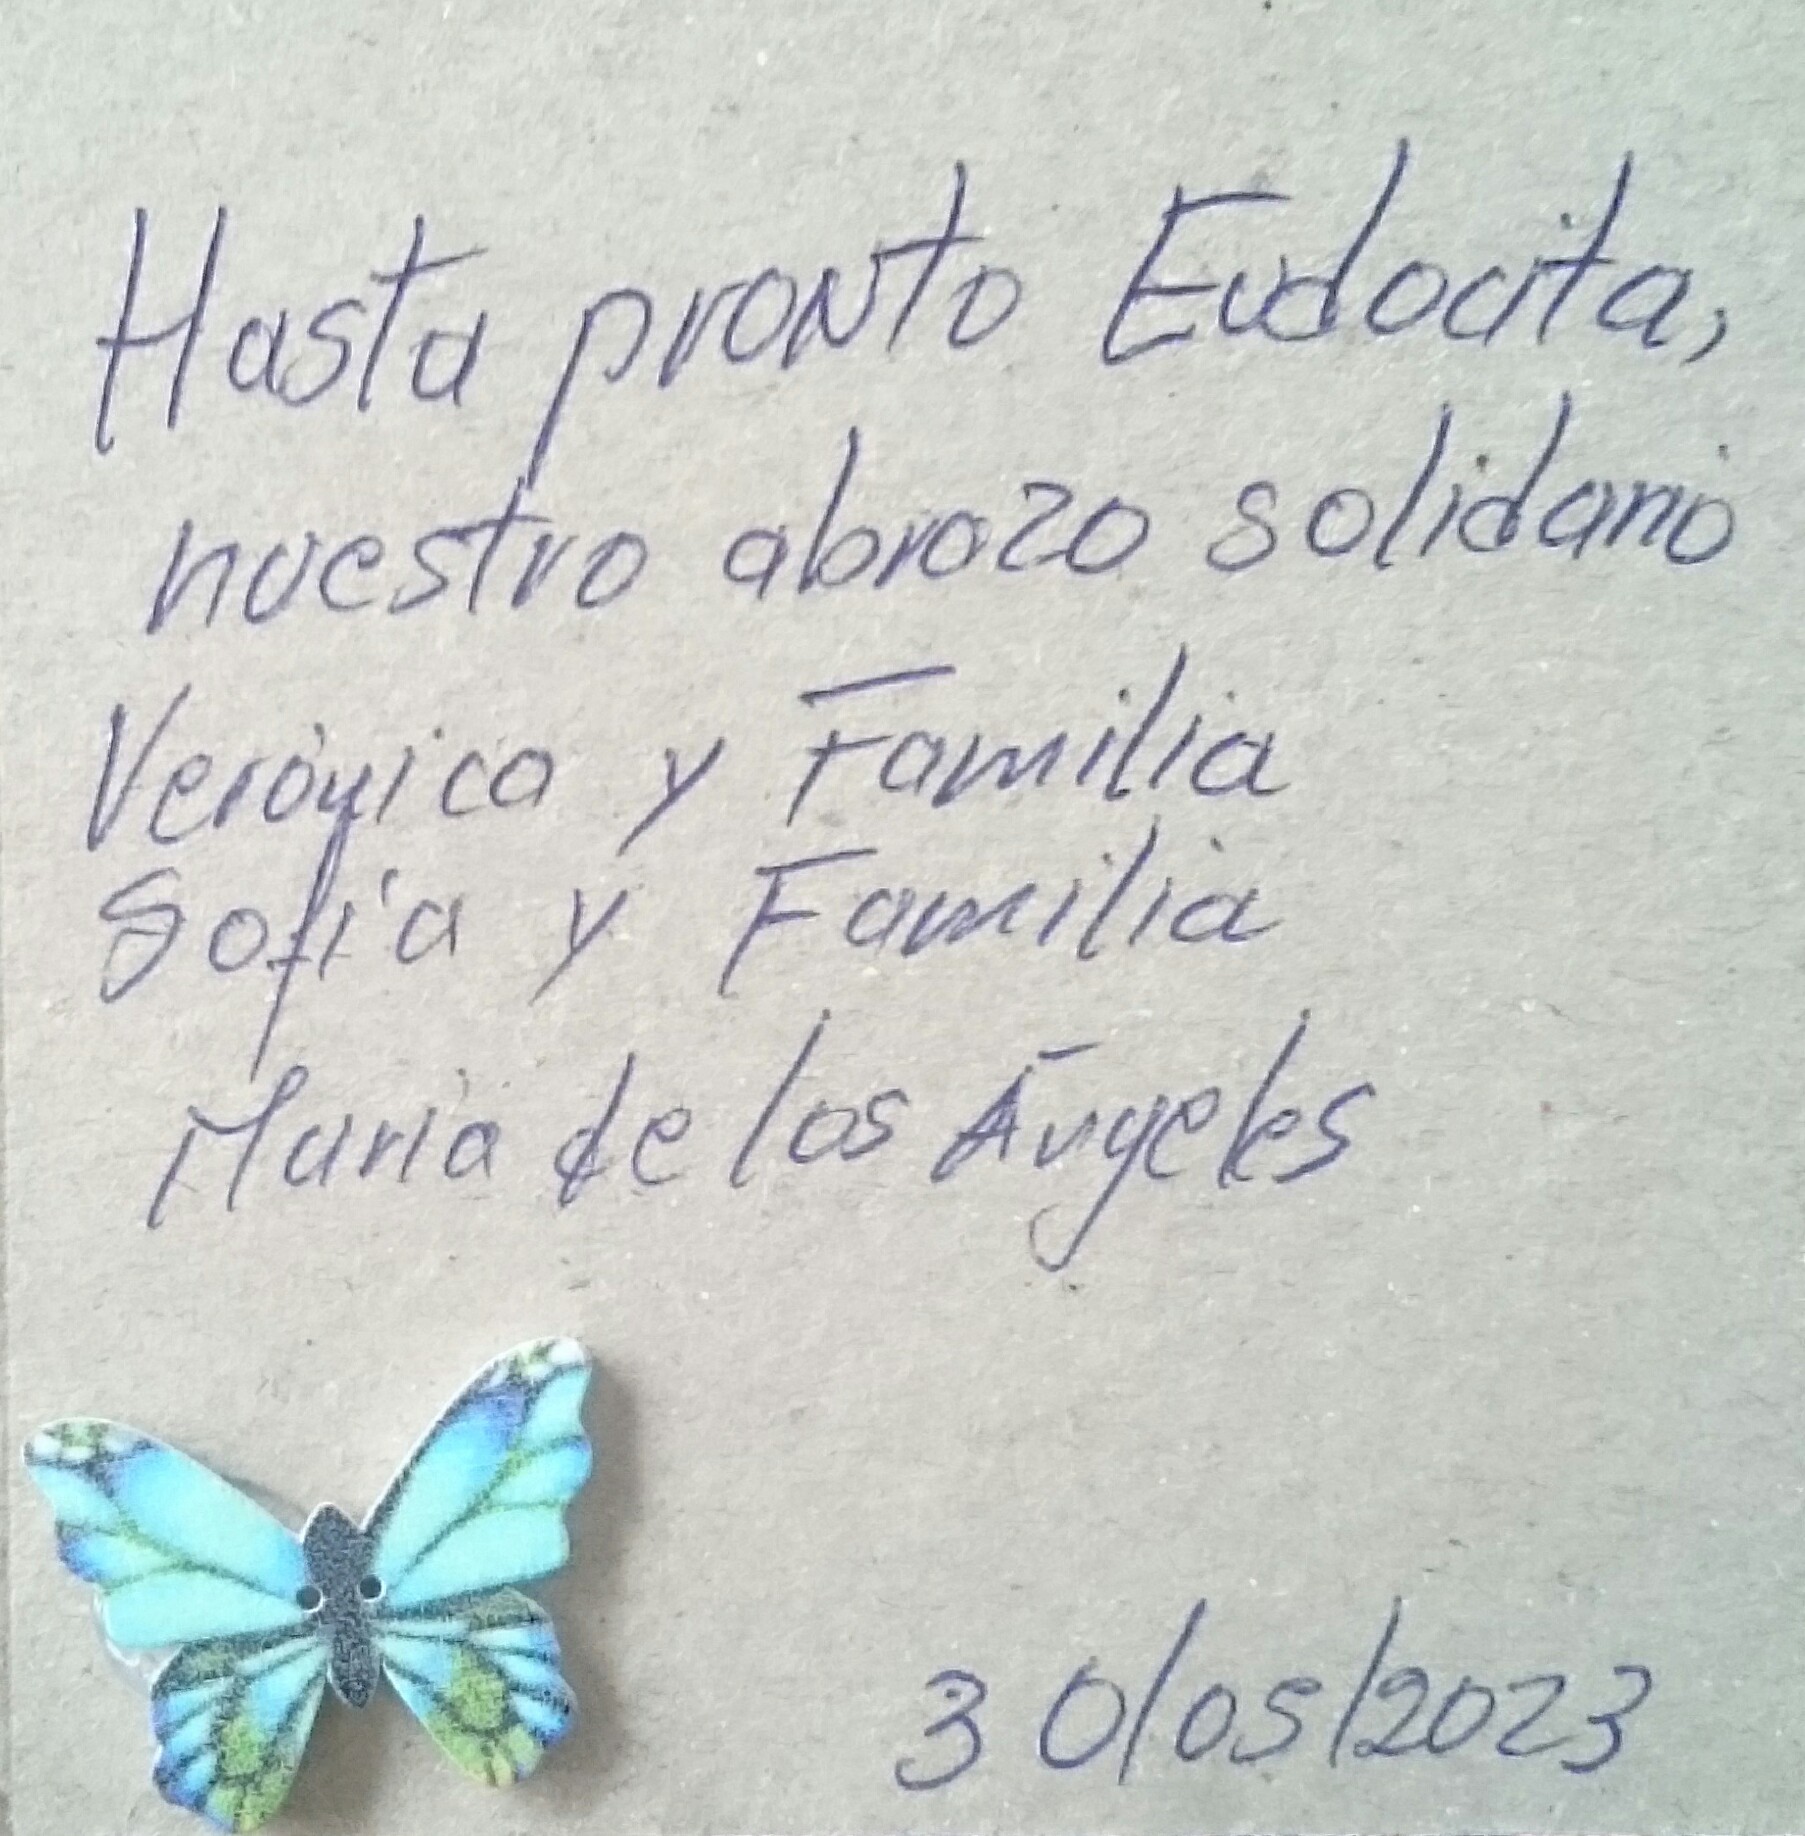 Hasta pronto Eudocita,
nuestro abrazo solidario
Verónica y Familia
Sofía y Familia
María de los Ángeles
30/05/2023